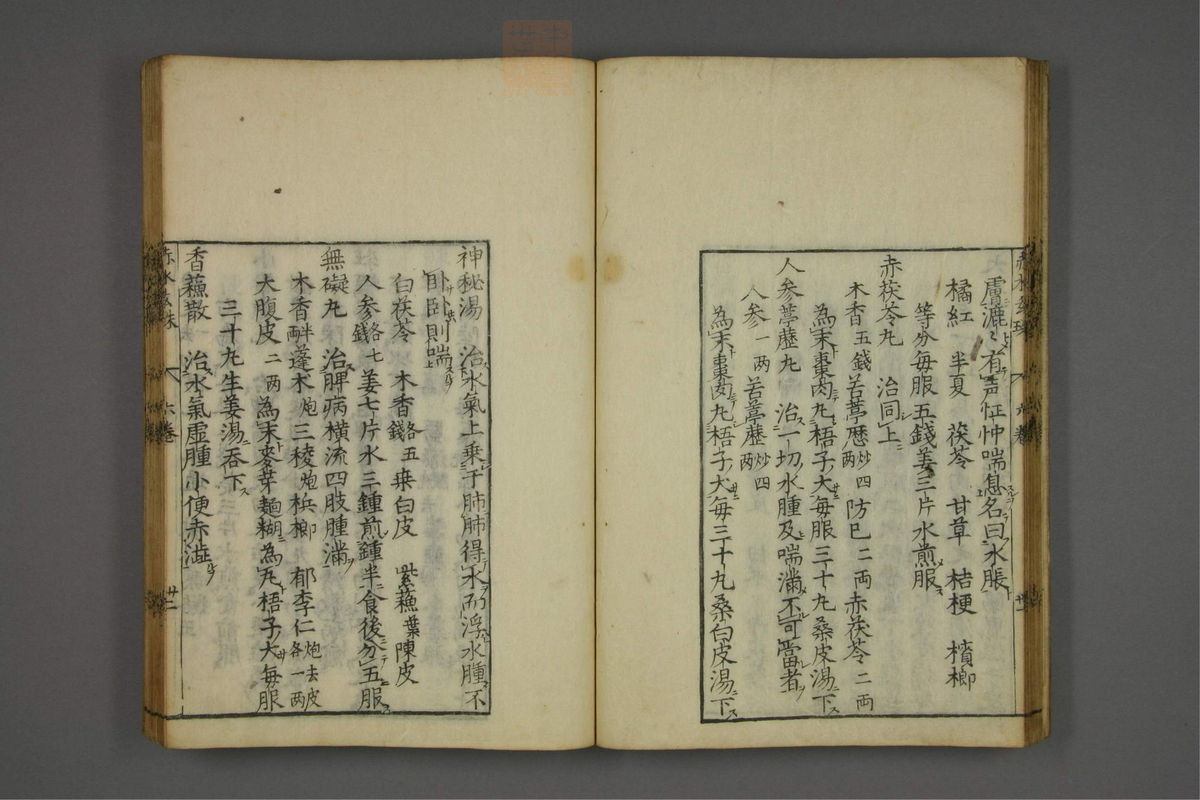 膚漉〻有声怔忡喘息名曰水脹
橘紅 半夏 茯苓 甘草 桔梗 檳榔
等分毎服五錢姜三片水煎服
赤茯苓丸 治同上
木香五錢 苦葶歴炒四両 防已二両赤茯苓二両
為末棗肉丸梧子大毎服三十丸桑皮湯下
人参葶歴丸 治一切水腫及喘満不可當者
人参一两 苦葶歴炒四两
為末棗肉丸梧子大毎三十丸桑白皮湯下
神秘湯 治水氣上乗于肺肺得水而浮水腫不
卧卧則喘
白茯苓 木香各五錢 桒白皮 紫蘓葉陳皮
人参各七錢 姜七片水三鍾煎鍾半食後分五服
無礙丸 治脾病横流四肢腫満
木香半两 蓬木炮 三稜炮 梹榔 郁李仁炮去皮各一两
大腹皮二两 為末麥芽麺糊為丸梧子大毎服
三十丸生姜湯吞下
香蘓散 治水氣虚腫小便赤澁
六卷